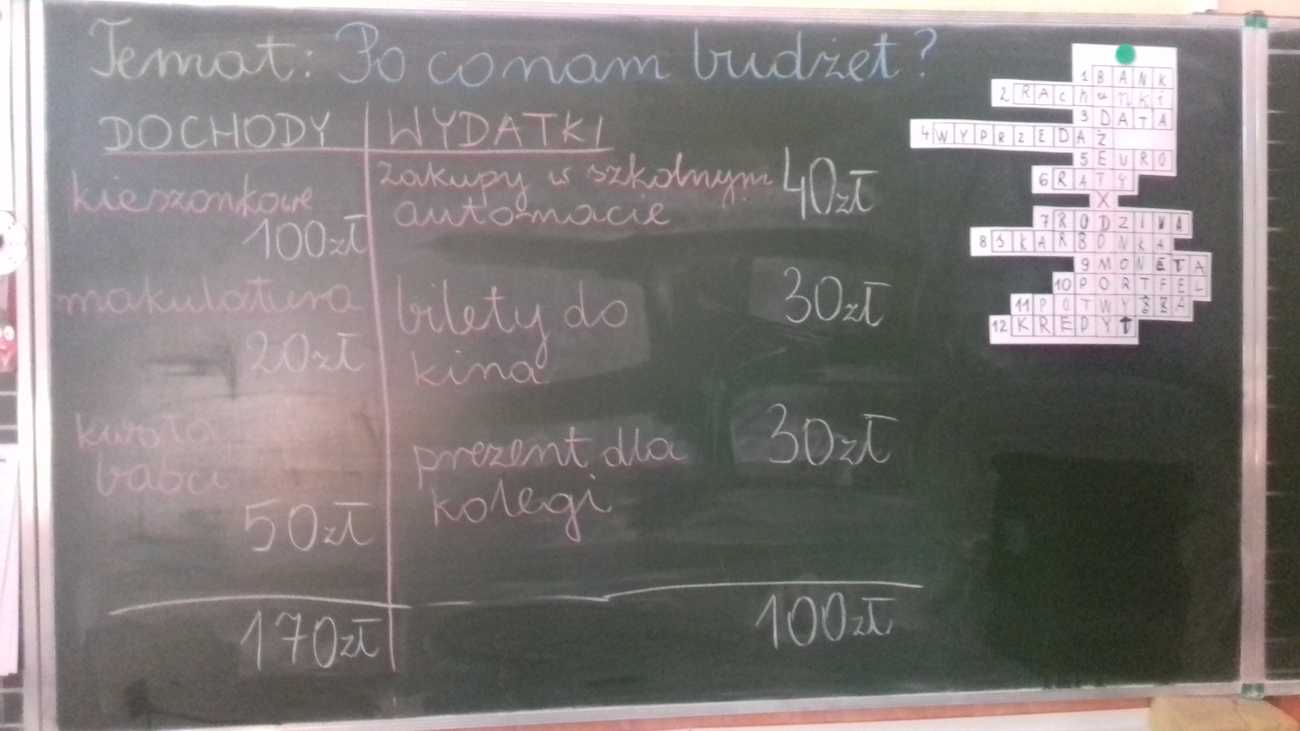 Temat: Po co nam budżet?
DOCHODY
kieszonkowe
100zł
makulatura
20zł
kwota
babci
50zł
170zł
WYDATKI
zakupy w szkolnym
automacie
40zł
bilety do
kina
30zł
prezent dla
kolegi
30zł
100zł
1 BANK
2 RACHUNKI
3 DATA
4 WYPRZEDAŻ
5 EURO
6 RATY
X
7 RODZINA
8 SKARBONKA
9 MONETA
10 PORTFEL
12 KREDYT